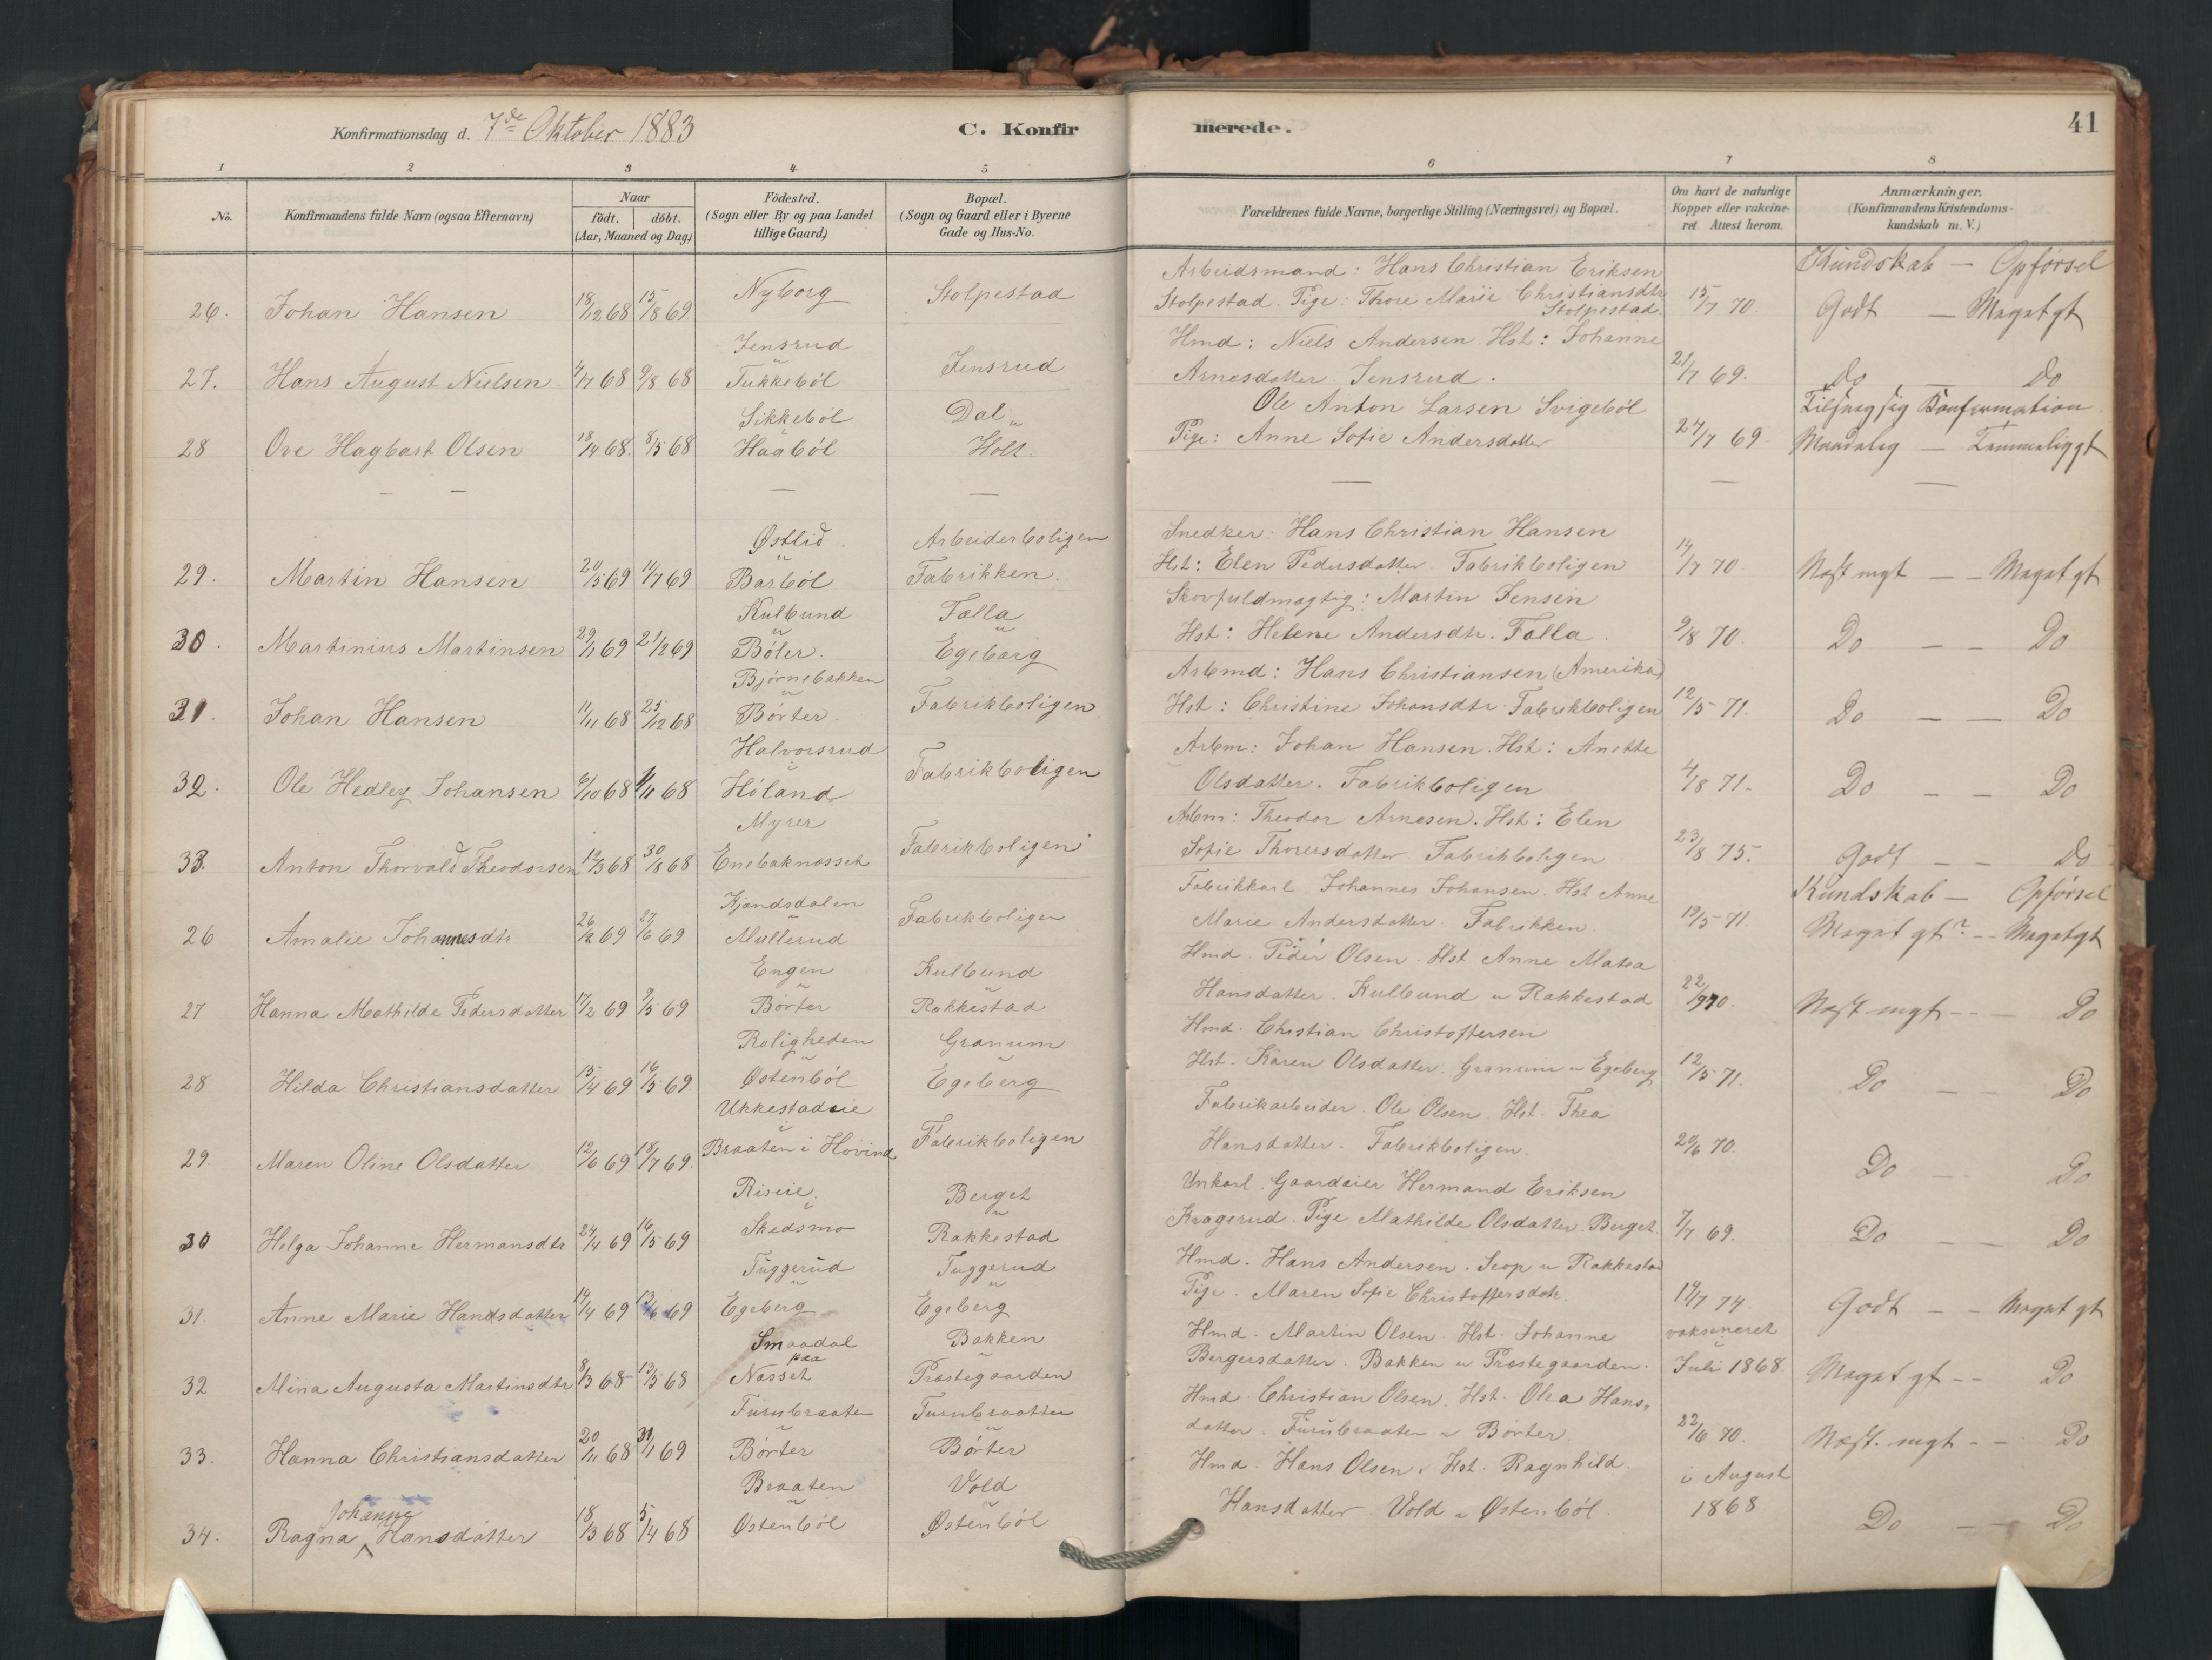 Konfirmationsdag d. 7de Oktober 1883
C. Konfirmerede.
41
1 2 3 4 5 6 7 8
No.
Konfirmandens fulde Navn (ogsaa Efternavn)
Naar
födt. döbt.
(Aar, Maaned og Dag)
Födested.
(Sogn eller By og paa Landet
tillige Gaard)
Bopæl.
(Sogn og Gaard eller i Byerne
Gade og Hus-No.
Forældrenes fulde Navne, borgerlige Stilling (Næringsvei) og Bopæl.
Om havt de naturlige
Kopper eller vakcine-
ret Attest herom.
Anmærkninger.
(Konfirmandens Kristendoms-
kundskab m. V.)
Arbeidsmand: Hans Christian Eriksen Kundskab — Opförsel
26. Johan Hansen 18/12 68 15/8 69 Nyborg Stolpestad Stolpestad. Pige: Thore Marie Christiansdtr Stolpestad. 15/7 70. Godt — Megat gt
Jensrud Jensrud Hmd: Niels Andersen. Hst: Johanne
27. Hans August Nielsen 4/7 68 9/8 68 Tukkeböl Arnesdatter. Jensrud. 21/7 69. Do — Do
Sikkeböl Dal " Ole Anton Larsen Svigeböl Konfirmation
28 Ove Hagbart Olsen 18/4 68. 8/5 68 Haaböl Holt. Pige: Anne Sofie Andersdatter 24/7 69 Maadelig — Temmeliggt
— — — — — — —
Østlid Arbeiderboligen Snedker: Hans Christian Hansen
29. Martin Hansen 20/5 69 11/7 69 Barböl Fabrikken. Hst: Elen Pedersdatter. Fabrikboligen 14/7 70. Næst mgt — — Megat gt
Kulbund Falla Skovfuldmægtig: Martin Jensen
30. Martinius Martinsen 29/1 69 21/2 69 Böler. Egeberg Hst: Helene Andersdtr. Falla. 9/8 70. Do — — Do
Björnebakken Fabrikboligen Arbmd: Hans Christiansen (Amerika)
31. Johan Hansen 11/11 68 25/12 68 Börter. Hst: Christine Johansdtr. Fabrikboligen 12/5 71. Do — — Do
Halvorsrud Fabrikboligen Arbm: Johan Hansen. Hst: Anette
32. Ole Hedley Johansen 6/10 68 1/11 68 Höland Olsdatter. Fabrikboligen 4/8 71. Do — — Do
Myrer Fabrikboligen Arbm: Theodor Arnesen. Hst: Elen
33. Anton Thorvald Theodorsen 12/3 68 30/8 68 Enebaknæsset Sofie Thorersdatter. Fabrikboligen 23/8 75. Godt — — Do
Kjandsdalen Fabrikboligen Fabrikkarl. Johannes Johansen. Hst Anne Kundskab — Opförsel
26 Amalie Johannesdtr 26/2 69 27/6 69 Müllerud Marie Andersdatter. Fabrikken 19/5 71. Megat gt? — Megatgt
Engen Kulbund Hmd. Peder Olsen. Hst Anne Matea
27 Hanna Mathilde Pedersdatter 17/2 69 9/5 69 Börter Rakkestad Hansdatter. Kulbund u Rakkestad 22/9 70. Næst mgt — — Do
Roligheden Granum Hmd. Christian Christoffersen
28 Hilda Christiansdatter 15/4 69 16/5 69. Østenböl Egeberg Hst. Karen Olsdatter. Granum u Egeberg 12/5 71. Do — Do
Ukkestadeie Fabrikboligen Fabrikarbeider. Ole Olsen. Hst. Thea
29. Maren Oline Olsdatter 12/6 69 18/7 69. Braaten i Hovind Hansdatter. Fabrikboligen. 20/6 70. Do — Do
Riseie. Berget Unkarl. Gaardeier Hermand Eriksen
30 Helga Johanne Hermansdtr 24/4 69 16/5 69 Skedsmo Rakkestad Kragerud. Pige Mathilde Olsdatter. Berget. 7/7 69. Do — — Do
Tuggerud Tuggerud Hmd. Hans Andersen. u Rakkestad
31. Anne Marie Handsdatter 14/4 69 13/6 69 Egeberg Egeberg Pige. Maren Sofie Christoffersdatr. 14/7 74 Godt — — Megat gt
Smaadal Bakken Hmd. Martin Olsen. Hst. Johanne vaksineret
32 Mina Augusta Martinsdtr 8/3 68 13/5 68 paa Næsset Præstegaarden Bergersdatter. Bakken u Præstegaarden. Juli 1868. Megat gt — — Do
Furubraaten Furubraaten Hmd. Christian Olsen. Hst. Olea Hans-
33. Hanna Christiansdatter 20/11 68 31/1 69 Börter Börter datter. Furubraaten u Börter. 22/6 70. Næst. mgt — — Do
Braaten Vold Hmd. Hans Olsen. Hst. Ragnhild. i August
34. Ragna Johanne Hansdatter 18/3 68 5/4 68 Østenböl Østenböl Hansdatter Vold u Østenböl. 1868. Do — — Do